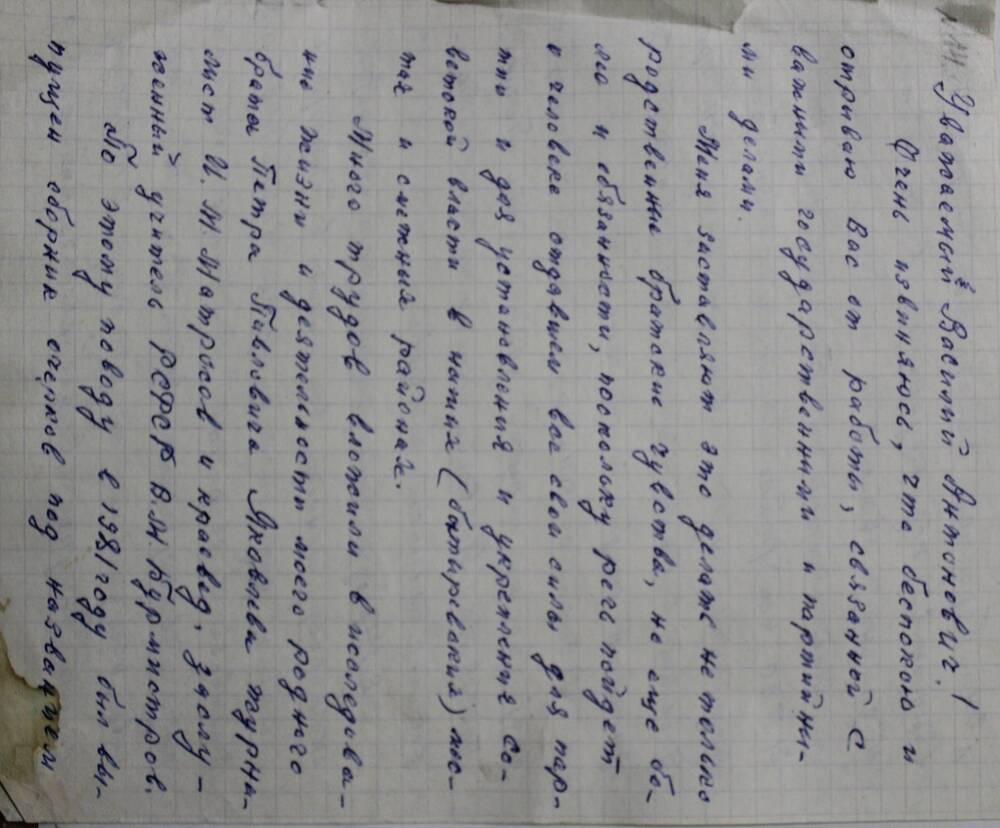 №14. Уважаемый Василий Антонович!
Очень извиняюсь, что беспокою и
отрываю Вас от работы, связанной с
важными государственными и партийны-
ми делами.
Меня заставляют это делать не только
родственные братские чувства, но еще бо-
лее и обязанности, поскольку речь пойдет
о человеке отдавшем все свои силы для пар-
тии и для установления и укрепления Со-
ветской власти в наших (батыревских) мес-
тах и смежных районах.
Много трудов вложили в исследова-
ние жизни и деятельности моего родного
брата Петра Павловича Яковлева журна-
лист И. М. Матросов и краевед, заслу-
женный учитель РСФСР В.М. Бурмистров.
По этому поводу в 1981 году был вы-
пущен сборник очерков под названием